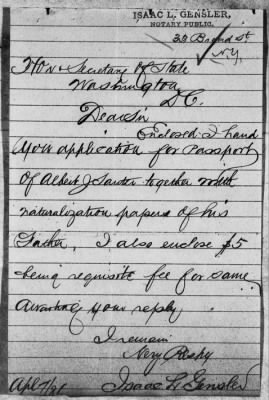 ISAAC L. GENSLER,
NOTARY PUBLIC.
38 Broad St
N.Y.
Hon Secretary of State
Washington
D.C.
Dear Sir
Enclosed I hand
you application for Passport
of Albert J. together with
naturalization papers of his
Father, I also enclose $5
being requisite fee for same
Awaiting your reply
I remain
Very Respy
Isaac L. Gensler